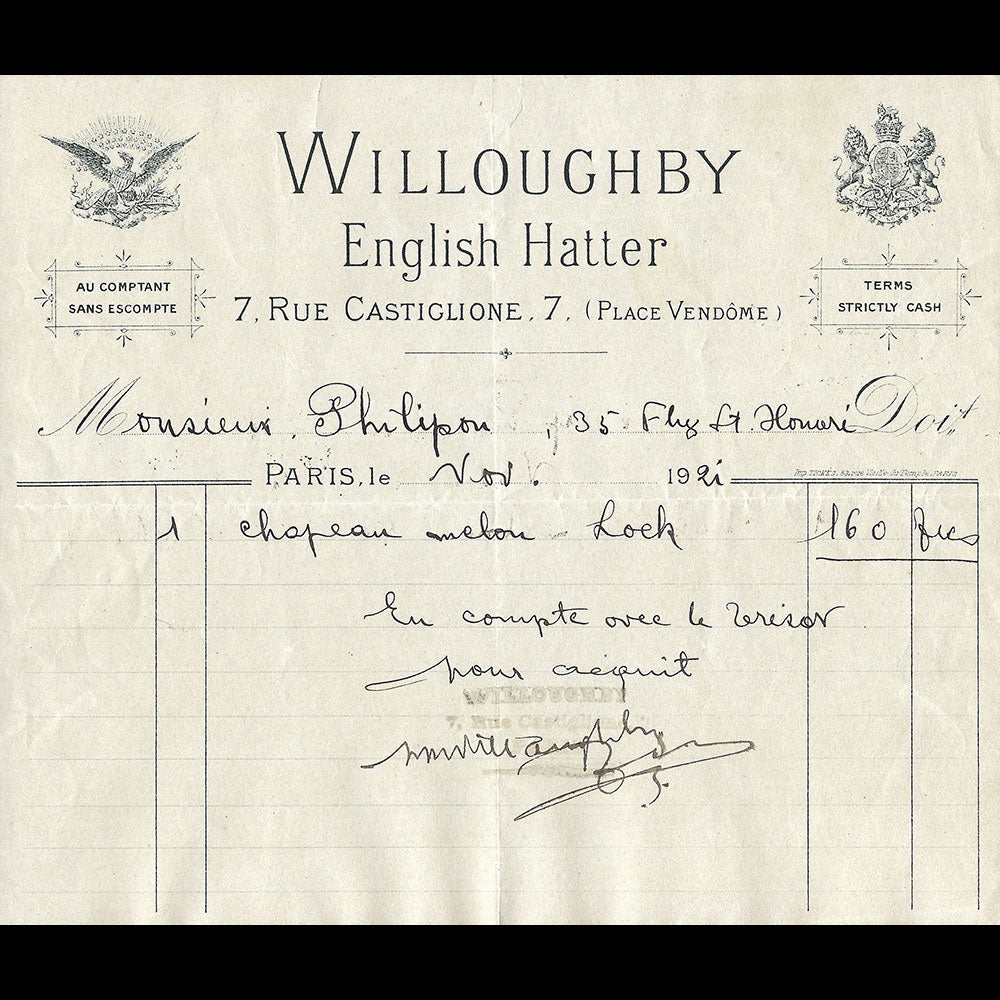 WILLOUGHBY
English Hatter
AU COMPTANT
SANS ESCOMPTE
7, RUE CASTIGLIONE, 7, (PLACE VENDÔME)
TERMS
STRICTLY CASH
Monsieur Philipon, 35 Fbg St. Honoré Doit
PARIS, le Nov. 1921
1 chapeau melon - Lock 160 frcs
En compte avec le trésor
pour acquit
WILLOUGHBY
7, Rue Castiglione, 7